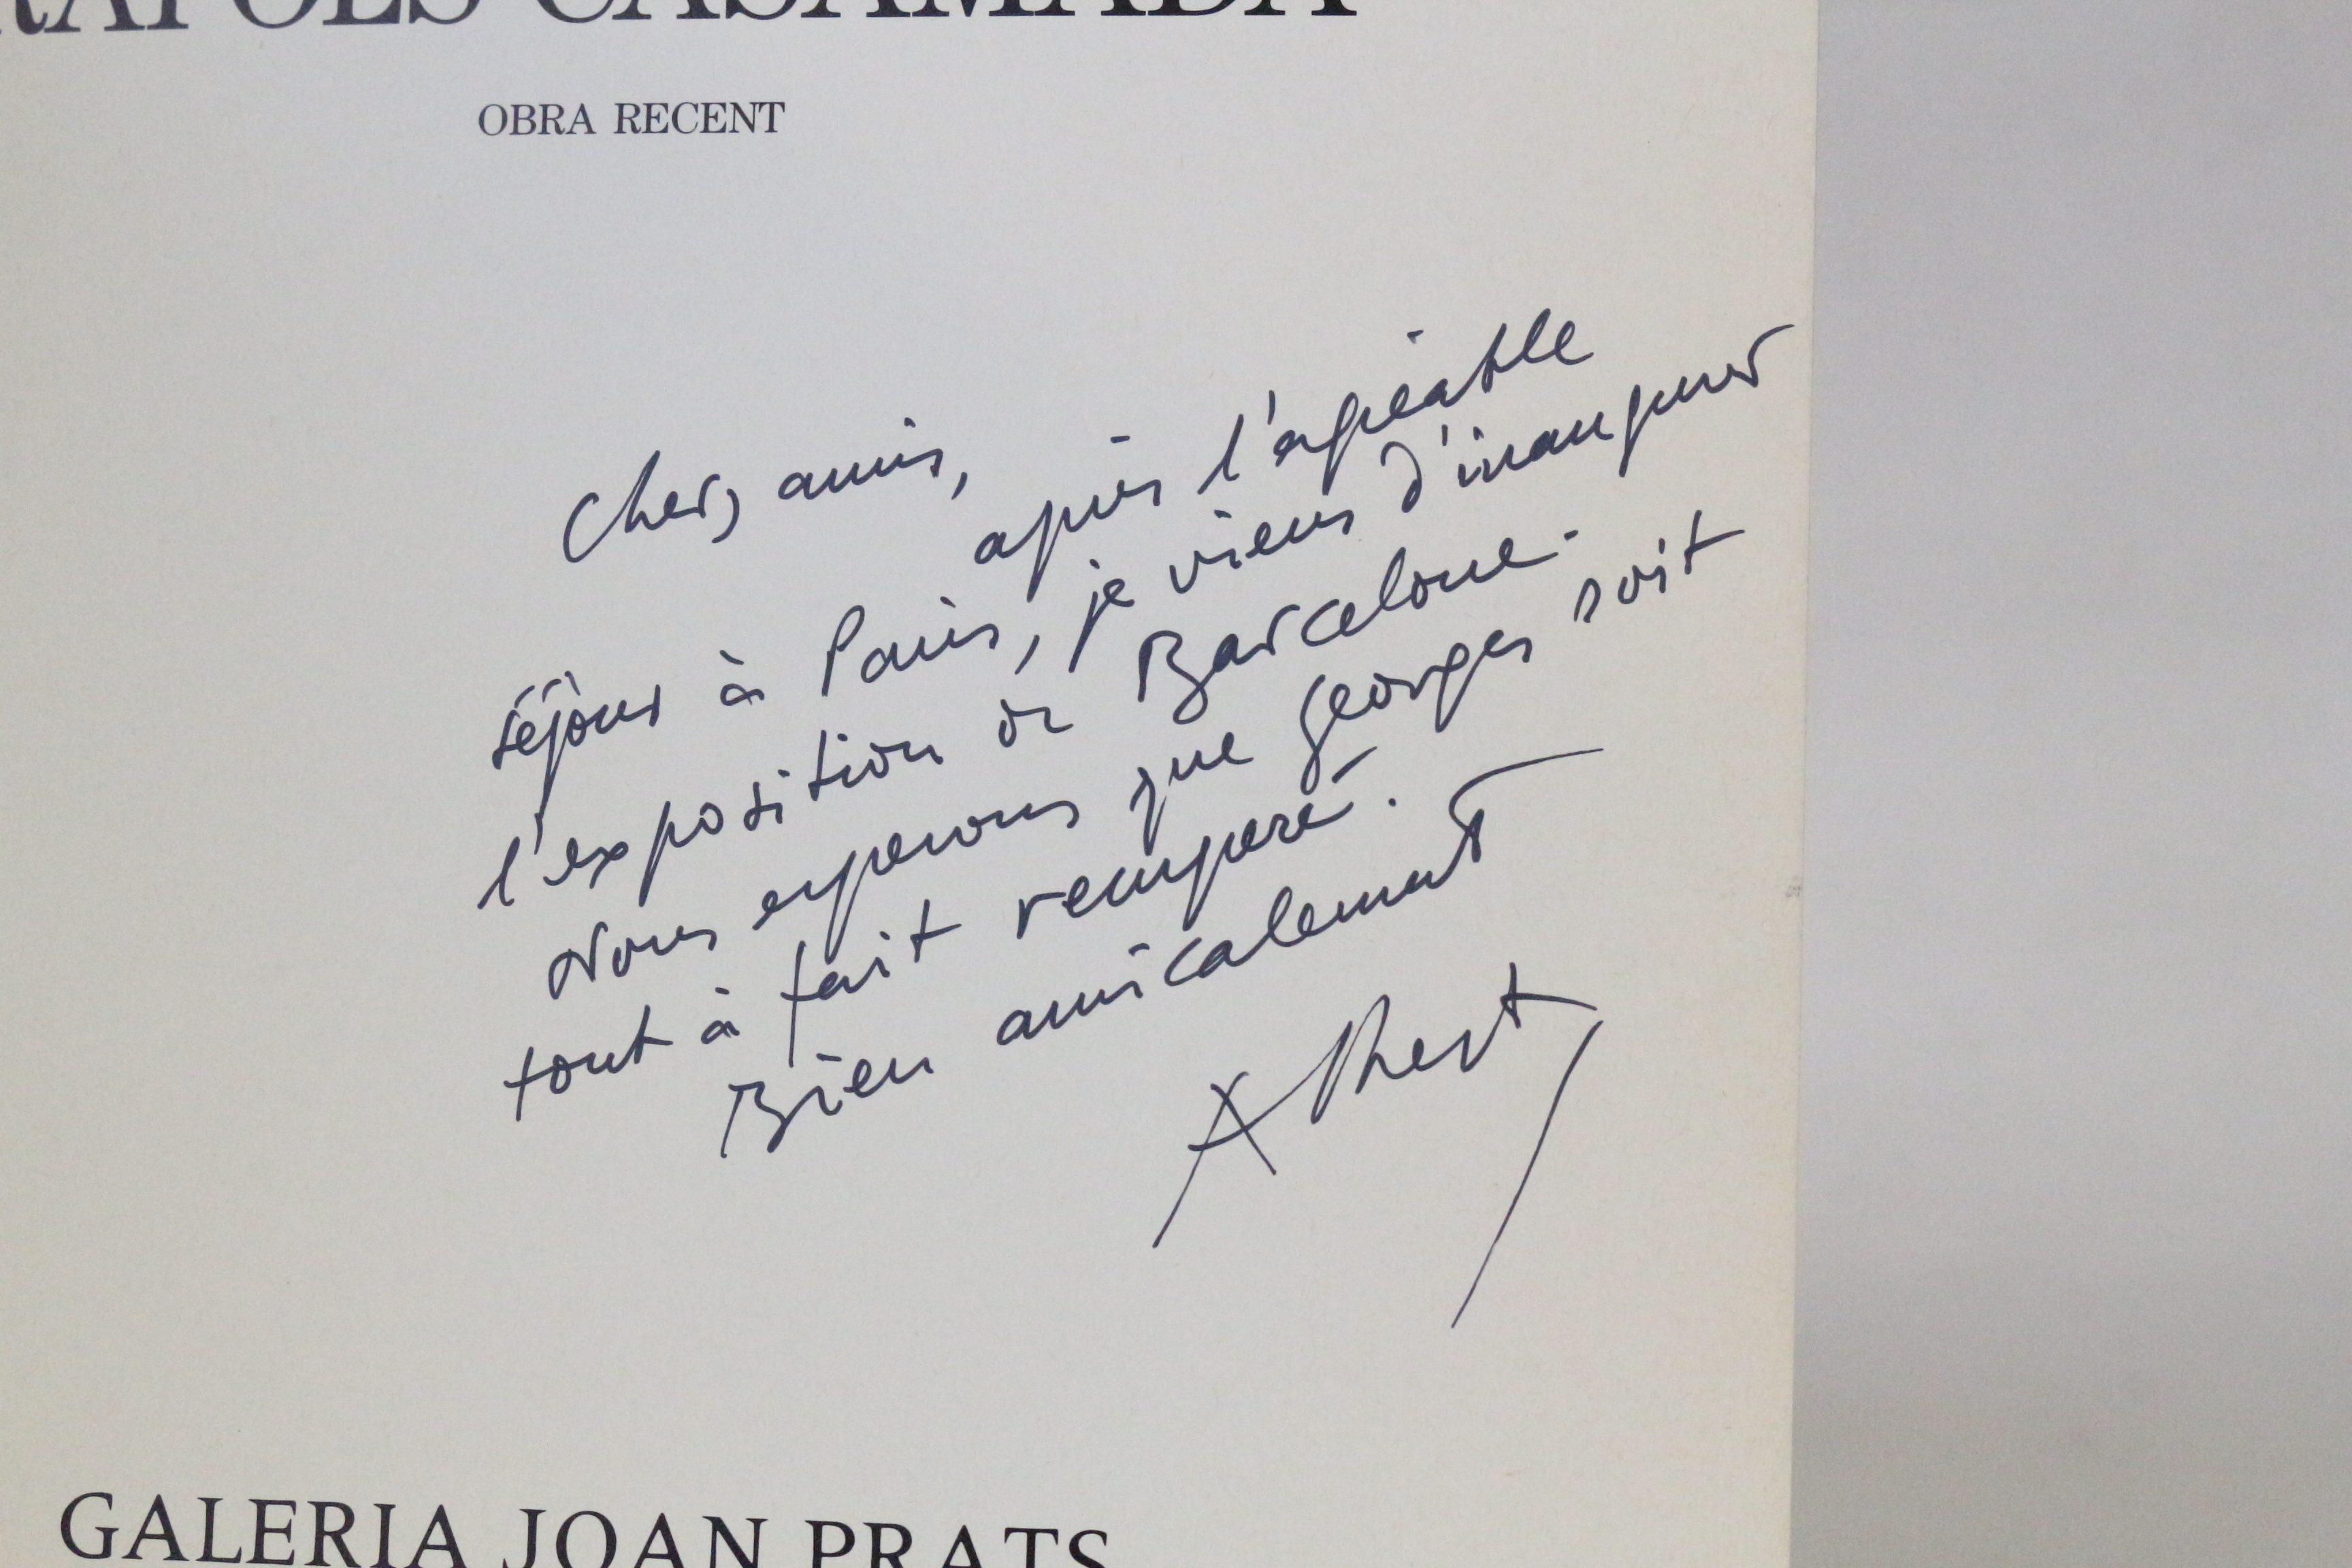 RÀFOLS CASAMADA
OBRA RECENT
Chers amis,
après l'agréable
séjour à Paris, je viens d'inaugurer
l'exposition de Barcelone.
Nous esperons que Georges soit
tout à fait recuperé.
Bien amicalement
Albert
GALERIA JOAN PRATS